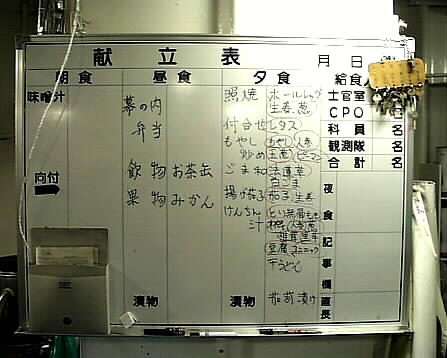 献立表
月 日
朝食 昼食 夕食 給食人
味噌汁 照焼 ホールレッグ 士官室 名
幕の内 生姜 葱 CPO 名
弁当 付合せ レタス 科員 名
もやし もやし 人参 観測隊 名
炒め 玉葱 ピーマン 合計 名
飲物 お茶缶 ごま和 法蓮草
白ごま
向付 果物 みかん 揚げ茄子 茄子 生姜 夜食
けんちん
汁
豆腐 コニャック
干うどん
記事欄
漬物 漬物 茄苅漬け 直長